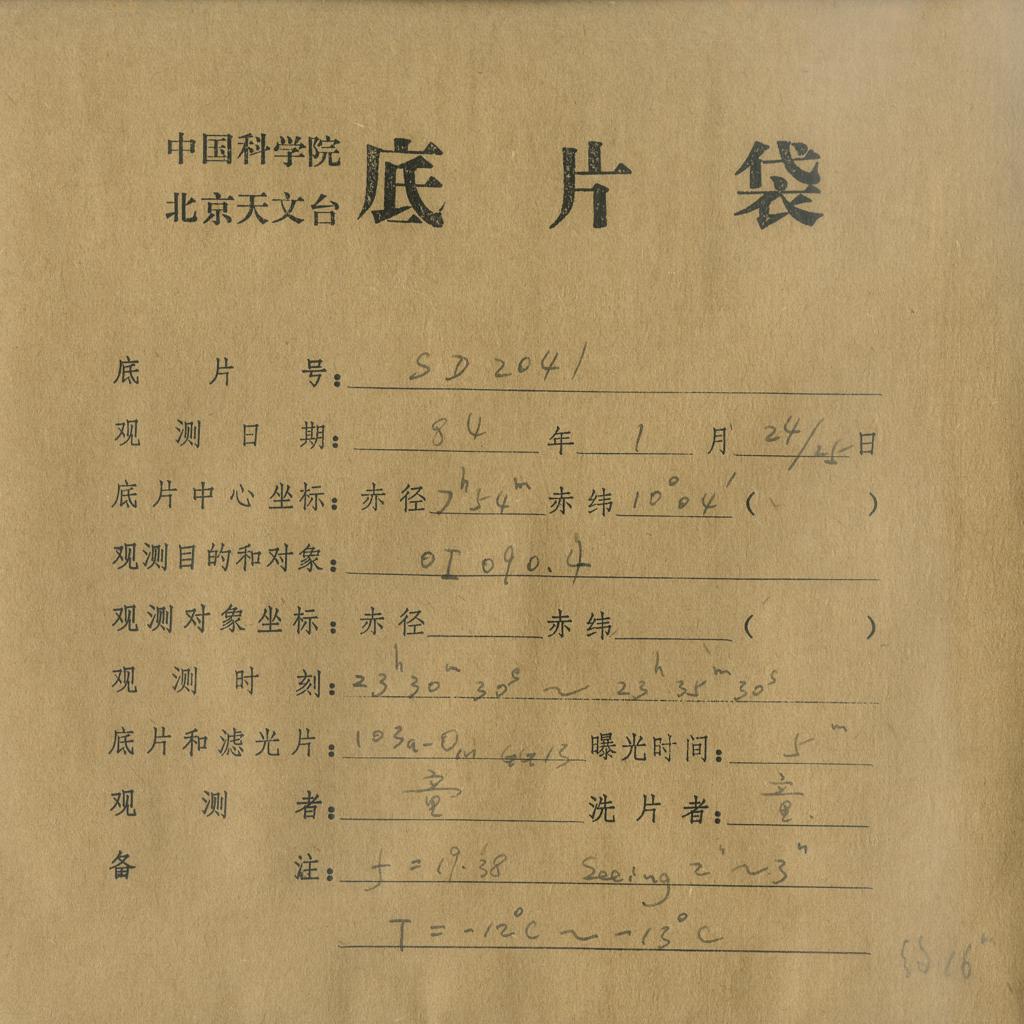 中国科学院
北京天文台
底片袋
底片号: SD2041
观测日期: 84年1月24/25日
底片中心坐标: 赤径7ʰ54ᵐ赤纬10°04′( )
观测目的和对象: OI 090.4
观测对象坐标: 赤径 赤纬 ( )
观测时刻: 23ʰ30ᵐ30ˢ ~ 23ʰ35ᵐ30ˢ
底片和滤光片: 103a-O 13 曝光时间: 5ᵐ
观测者: 童 洗片者: 童
备注: f=19.38 Seeing 2″~3″
T=-12°C ~ -13°C
16ᵐ